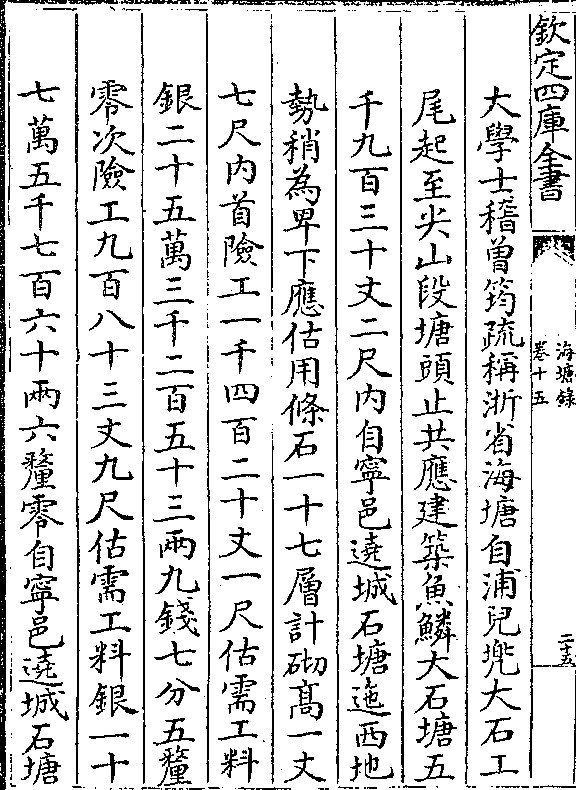 欽定四庫全書
海塘錄
卷十五
二十五
大學士嵇曾筠疏稱浙省海塘自浦兒兠大石工
尾起至尖山段塘頭止共應建築魚鱗大石塘五
千九百三十丈二尺内自寧邑遶城石塘迤西地
勢稍為卑下應估用條石一十七層計砌髙一丈
七尺内首險工一千四百二十丈一尺估需工料
銀二十五萬三千二百五十三兩九錢七分五釐
零次險工九百八十三丈九尺估需工料銀一十
七萬五千七百六十兩六釐零自寧邑遶城石塘